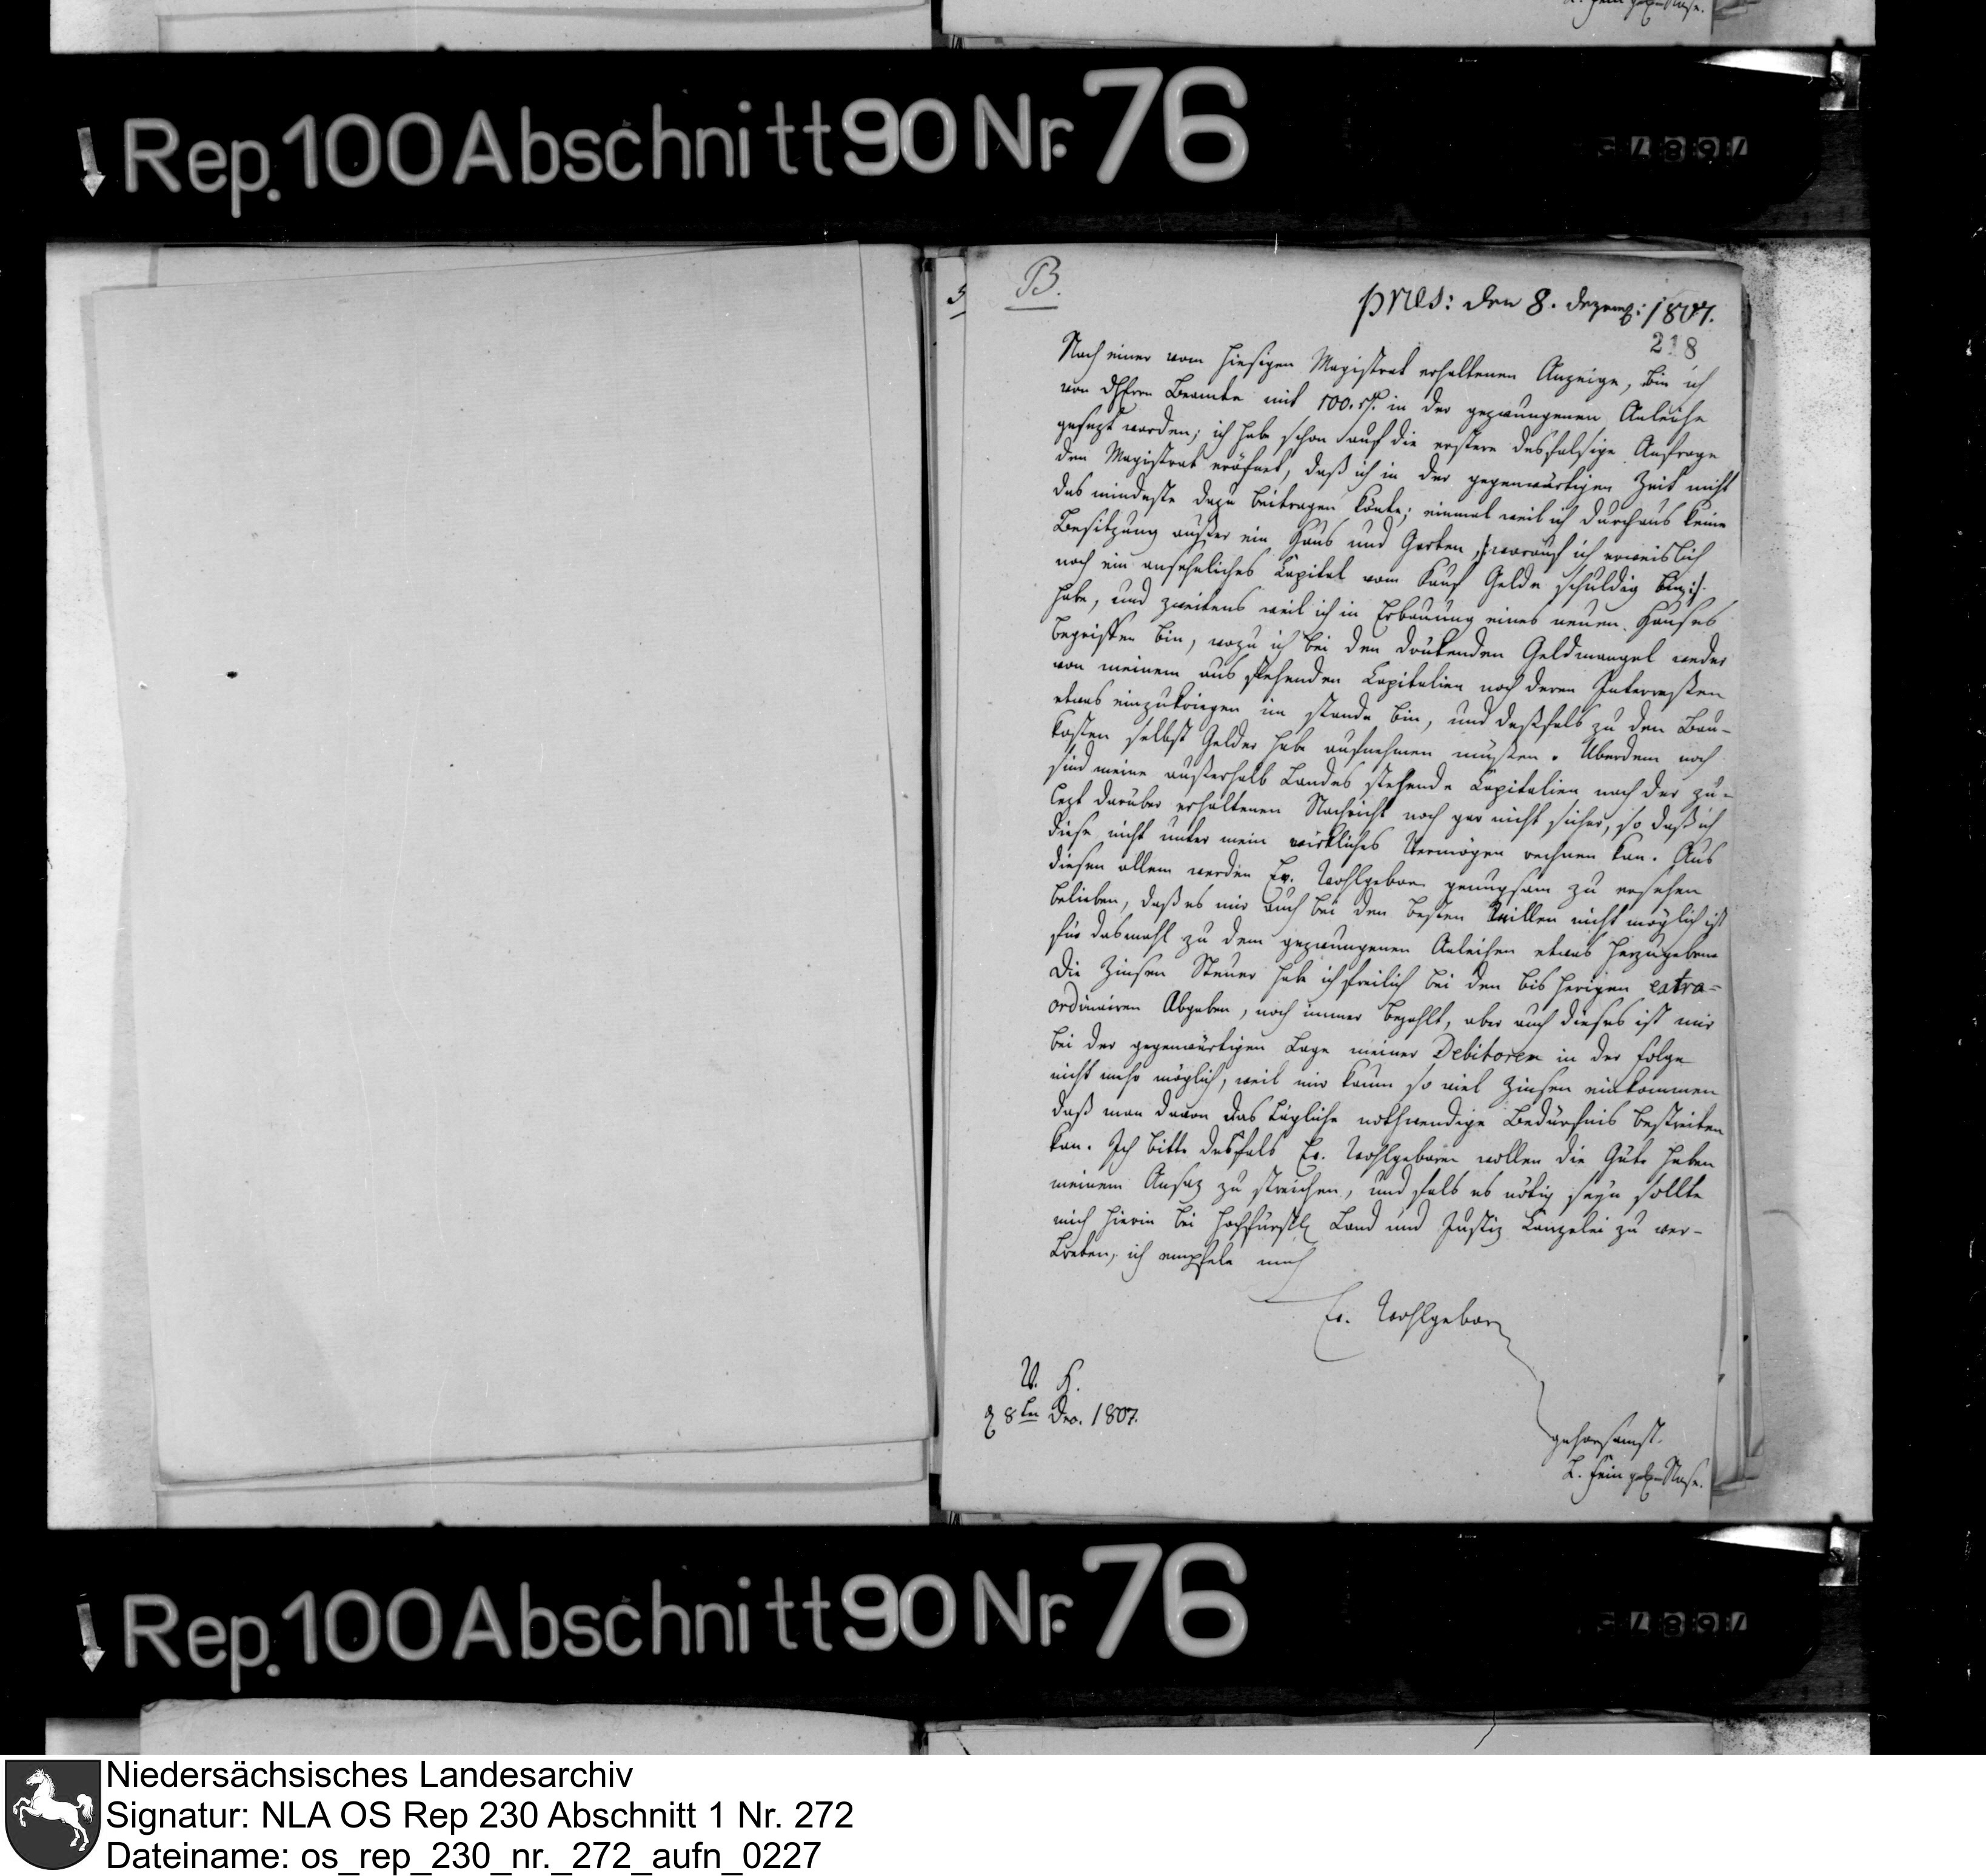 Rep. 100 Abschnitt 90 Nr. 76
B.
præs: den 8. Dezemb: 1807.
218
Nach einer vom hiesigen Magistrat erhaltenen Anzeige, bin ich
von Beamte mit 100. rth. in der gezwungenen Anleihe
gesezt worden; ich habe schon auf die erstere desfalsige Anfrage
den Magistrat eröfnet, daß ich in der gegenwärtigen Zeit nicht
das mindeste dazu beitragen könte; einmal weil ich durchaus keine
Besitzung außer ein Haus und Garten, /:worauf ich erweislich
noch ein ansehnliches Capital vom Kauf Gelde schuldig bin:/
habe, und zweitens weil ich in Erbauung eines neuen Hauses
begriffen bin, wozu ich bei den drükenden Geldmangel weder
von meinem aus stehenden Capitalien noch deren Interressen
etwas einzukriegen im stande bin, und deßfals zu den Bau-
kosten selbst Gelder habe aufnehmen müßen. Überdem noch
sind meine außerhalb Landes stehende Capitalien nach der zu-
lezt darüber erhaltenen Nachricht noch gar nicht sicher, so daß ich
diese nicht unter mein wirkliches Vermögen rechnen kan. Aus
diesen allem werden Ew. Wohlgebor. genugsam zu ersehen
belieben, daß es mir auch bei den besten Willen nicht möglich ist
für dasmahl zu dem gezwungenen Anleihen etwas herzugeben.
Die Zinsen Steuer habe ich freilich bei den bisherigen extra-
ordinairen Abgaben, noch immer bezahlt, aber auch dieses ist mir
bei der gegenwärtigen Lage meiner Debitoren in der Folge
nicht mehr möglich, weil mir kaum so viel Zinsen einkommen
daß man davon das tägliche nothwendige Bedürfnis bestreiten
kan. Ich bitte desfals Ew. Wohlgeboren wollen die Güte haben
meinem Ansaz zu streichen, und fals es nötig seyn sollte
mich hierin bei Hochfürstl Land und Justiz Canzelei zu ver-
treten, ich empfele mich
Ew. Wohlgebor
V. H.
d 8ten Dec. 1807.
gehorsamst.
Rep. 100 Abschnitt 90 Nr. 76
Niedersächsisches Landesarchiv
Signatur: NLA OS Rep 230 Abschnitt 1 Nr. 272
Dateiname: os_rep_230_nr._272_aufn_0227